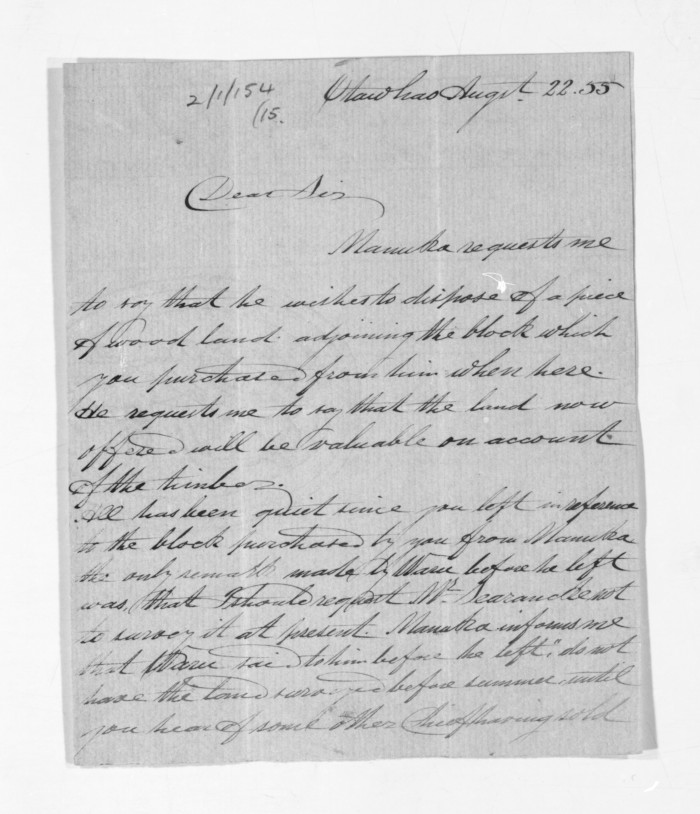 2/1/154
/15.
Otawhao Augst. 22.55
Dear Sir
Manuka requests me
to say that he wishes to dispose of a piece
of wood land adjoining the block which
you purchased from him when here.
He requests me to say that the land now
offered will be valuable on account
of the timber.
All has been quiet since you left in reference
to the block purchased by you from Manuka
the only remark made by Waru before he left
was, that I should request Mr. Searancke not
to survey it at present. Manuka informs me
that Waru said to him before he left "do not
have the land surveyed before summer, until
you hear of some other Chief having sold